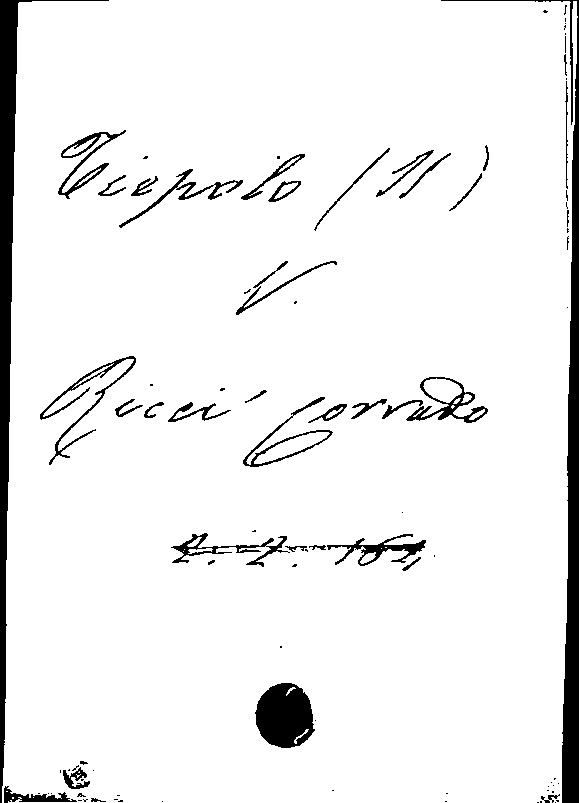 Tiepolo (Il)
V.
Ricci Corrado
2. 2. 164